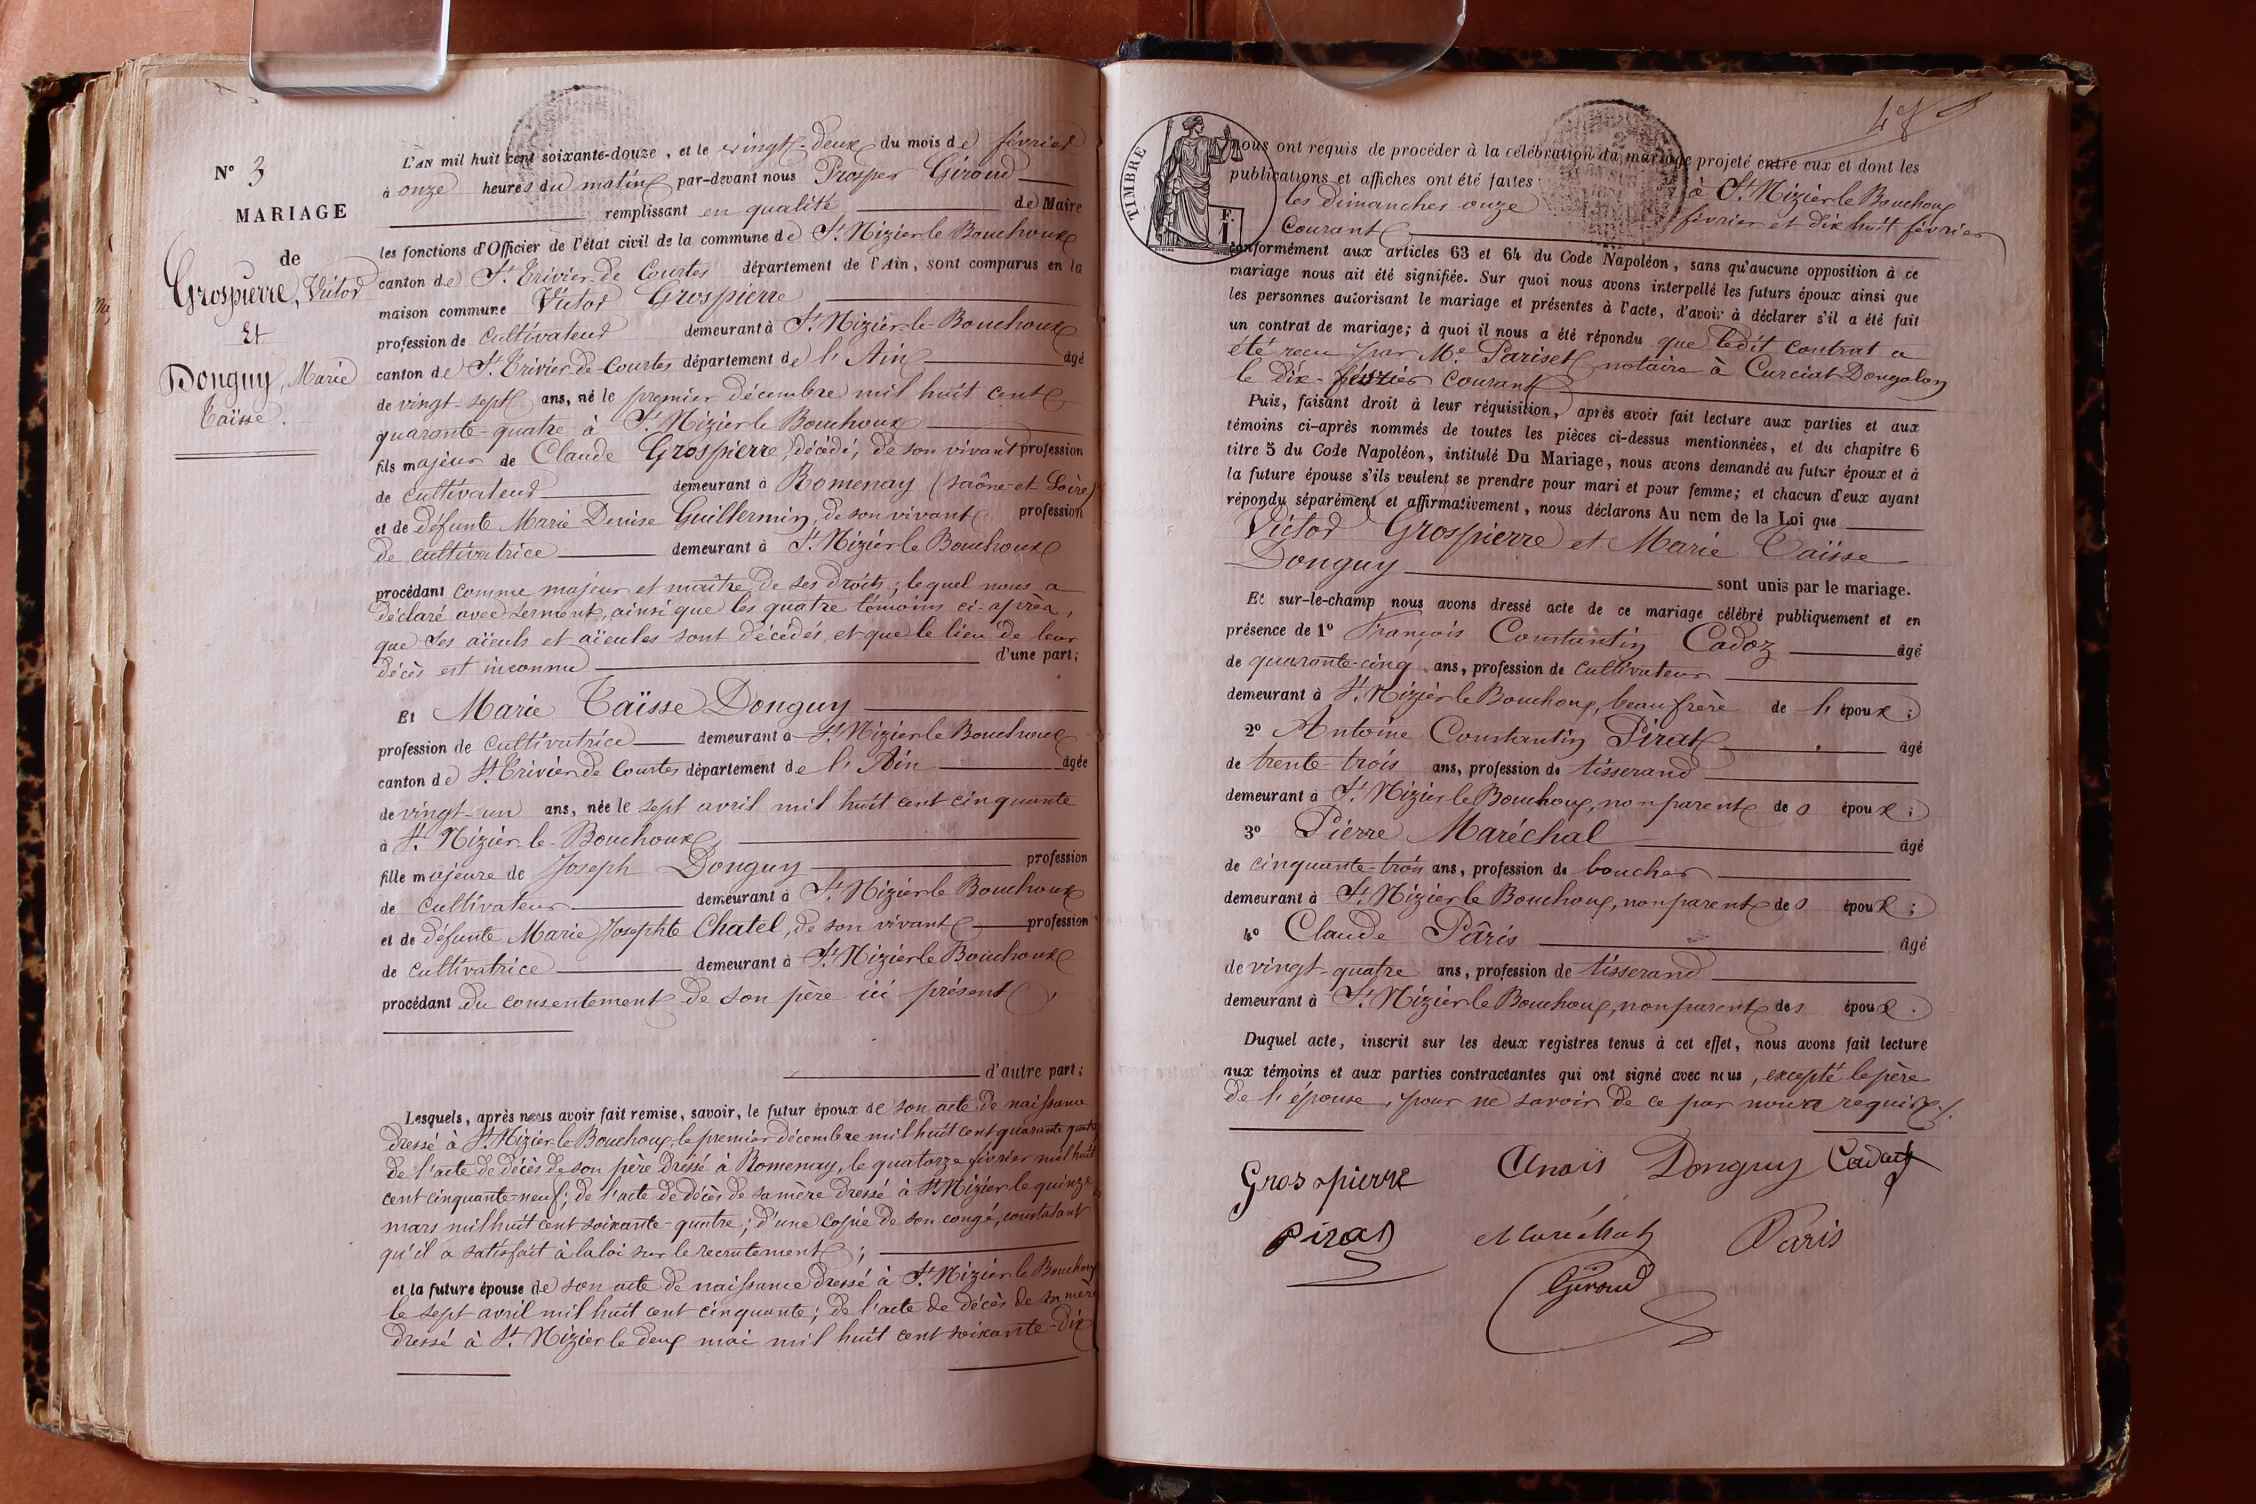 N° 3
MARIAGE
de
Grospierre, Victor
Et
Donguy, Marie
Taïsse.
L'AN mil huit cent soixante-douze, et le vingt-deux du mois de février
à onze heures du matin par-devant nous Prosper Giroud
remplissant en qualité de Maire
les fonctions d'Officier de l'état civil de la commune de St Nizier le Bouchoux
canton de St Trivier de Courtes département de l'Ain, sont comparus en la
maison commune Victor Grospierre
profession de cultivateur demeurant à St Nizier-le-Bouchoux
canton de St Trivier-de-Courtes département de l'Ain âgé
de vingt-sept ans, né le premier décembre mil huit cent
quarante-quatre à St Nizier le Bouchoux
fils majeur de Claude Grospierre, décédé, de son vivant profession
de cultivateur demeurant à Romenay (Saône-et-Loire)
et de défunte Marie Denise Guillermin, de son vivant profession
de cultivatrice demeurant à St Nizier le Bouchoux
procédant comme majeur et maître de ses droits; lequel nous a
déclaré avec serment, ainsi que les quatre témoins ci-après,
que ses aïeuls et aïeules sont décédés et que le lieu de leur
décès est inconnu d'une part;
Et Marie Taïsse Donguy
profession de cultivatrice demeurant à St Nizier le Bouchoux
canton de St Trivier de Courtes département de l'Ain âgée
de vingt-un ans, née le sept avril mil huit cent cinquante
à St Nizier-le-Bouchoux,
fille majeure de Joseph Donguy profession
de cultivateur demeurant à St Nizier le Bouchoux
et de défunte Marie Josephte Chatel, de son vivant profession
de cultivatrice demeurant à St Nizier le Bouchoux
procédant du consentement de son père ici présent,
d'autre part;
Lesquels, après nous avoir fait remise, savoir, le futur époux de son acte de naissance
dressé à St Nizier le Bouchoux, le premier décembre mil huit cent quarante quatre
de l'acte de décès de son père dressé à Romenay, le quatorze février mil huit
cent cinquante-neuf; de l'acte de décès de sa mère dressé à St Nizier le quinze
mars mil huit cent soixante-quatre; d'une copie de son congé, constatant
qu'il a satisfait à la loi sur le recrutement;
et la future épouse de son acte de naissance dressé à St Nizier le Bouchoux
le sept avril mil huit cent cinquante; de l'acte de décès de sa mère
dressé à St Nizier le deux mai mil huit cent soixante-dix
TIMBRE
F.
1
nous ont requis de procéder à la célébration du mariage projeté entre eux et dont les
publications et affiches ont été faites à St Nizier le Bouchoux
les dimanches onze février et dix huit février
courant
conformément aux articles 63 et 64 du Code Napoléon, sans qu'aucune opposition à ce
mariage nous ait été signifiée. Sur quoi nous avons interpellé les futurs époux ainsi que
les personnes autorisant le mariage et présentes à l'acte, d'avoir à déclarer s'il a été fait
un contrat de mariage; à quoi il nous a été répondu que ledit contrat a
été reçu par Me Pariset notaire à Curciat Dongalon
le dix-février courant
Puis, faisant droit à leur réquisition, après avoir fait lecture aux parties et aux
témoins ci-après nommés de toutes les pièces ci-dessus mentionnées, et du chapitre 6
titre 5 du Code Napoléon, intitulé Du Mariage, nous avons demandé au futur époux et à
la future épouse s'ils veulent se prendre pour mari et pour femme; et chacun d'eux ayant
répondu séparément et affirmativement, nous déclarons Au nom de la Loi que
Victor Grospierre et Marie Taïsse
Donguy sont unis par le mariage.
Et sur-le-champ nous avons dressé acte de ce mariage célébré publiquement et en
présence de 1° François Constantin Cadoz âgé
de quarante-cinq ans, profession de cultivateur
demeurant à St Nizier le Bouchoux, beau frère de l'époux;
2° Antoine Constantin Pirat âgé
de trente-trois ans, profession de tisserand
demeurant à St Nizier le Bouchoux, non parent des époux;
3° Pierre Maréchal âgé
de cinquante-trois ans, profession de boucher
demeurant à St Nizier le Bouchoux, non parent des époux;
4° Claude Pâris âgé
de vingt-quatre ans, profession de tisserand
demeurant à St Nizier le Bouchoux, non parent des époux.
Duquel acte, inscrit sur les deux registres tenus à cet effet, nous avons fait lecture
aux témoins et aux parties contractantes qui ont signé avec nous, excepté le père
de l'épouse, pour ne savoir de ce par nous requis.
Grospierre Anaïs Donguy
Pirat Maréchal Pâris
Giroud